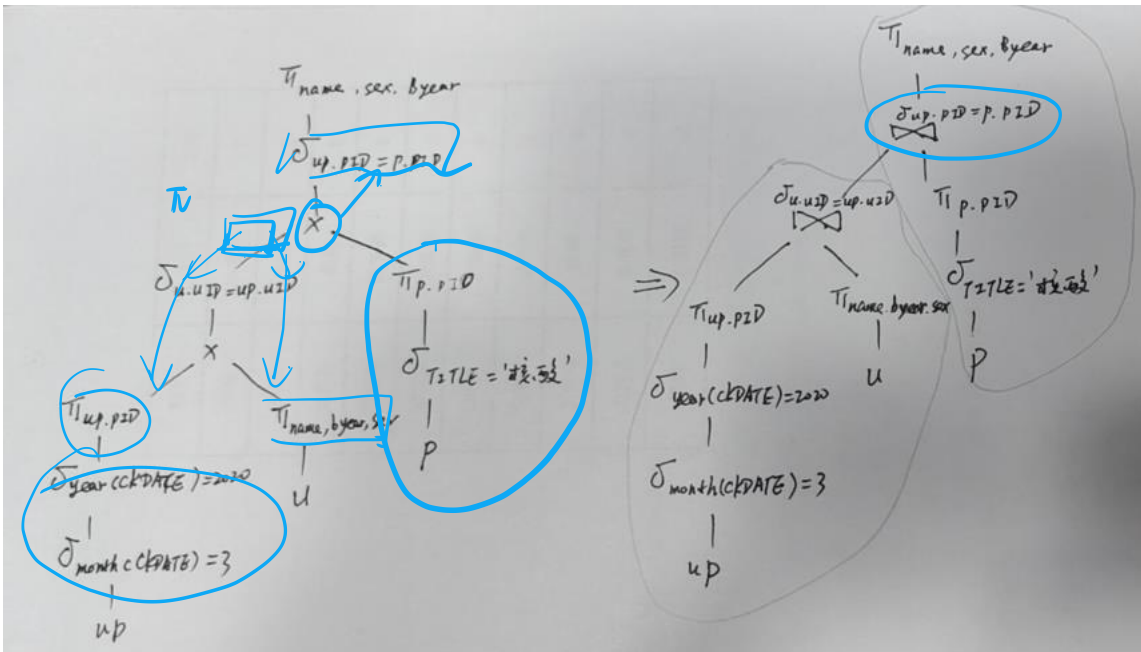 π name, sex, Byear
σ up.PID = P.PID
π
×
σ u.uID = up.uID
×
π up.PID
σ year(CKDATE)=2020
σ month(CKDATE)=3
up
π name, byear, sex
u
π P.PID
σ TITLE='核酸'
P
⇒
π name, sex, Byear
σ up.PID = P.PID
⋈
σ u.uID = up.uID
⋈
π up.PID
σ year(CKDATE)=2020
σ month(CKDATE)=3
up
π name.byear.sex
u
π P.PID
σ TITLE='核酸'
P